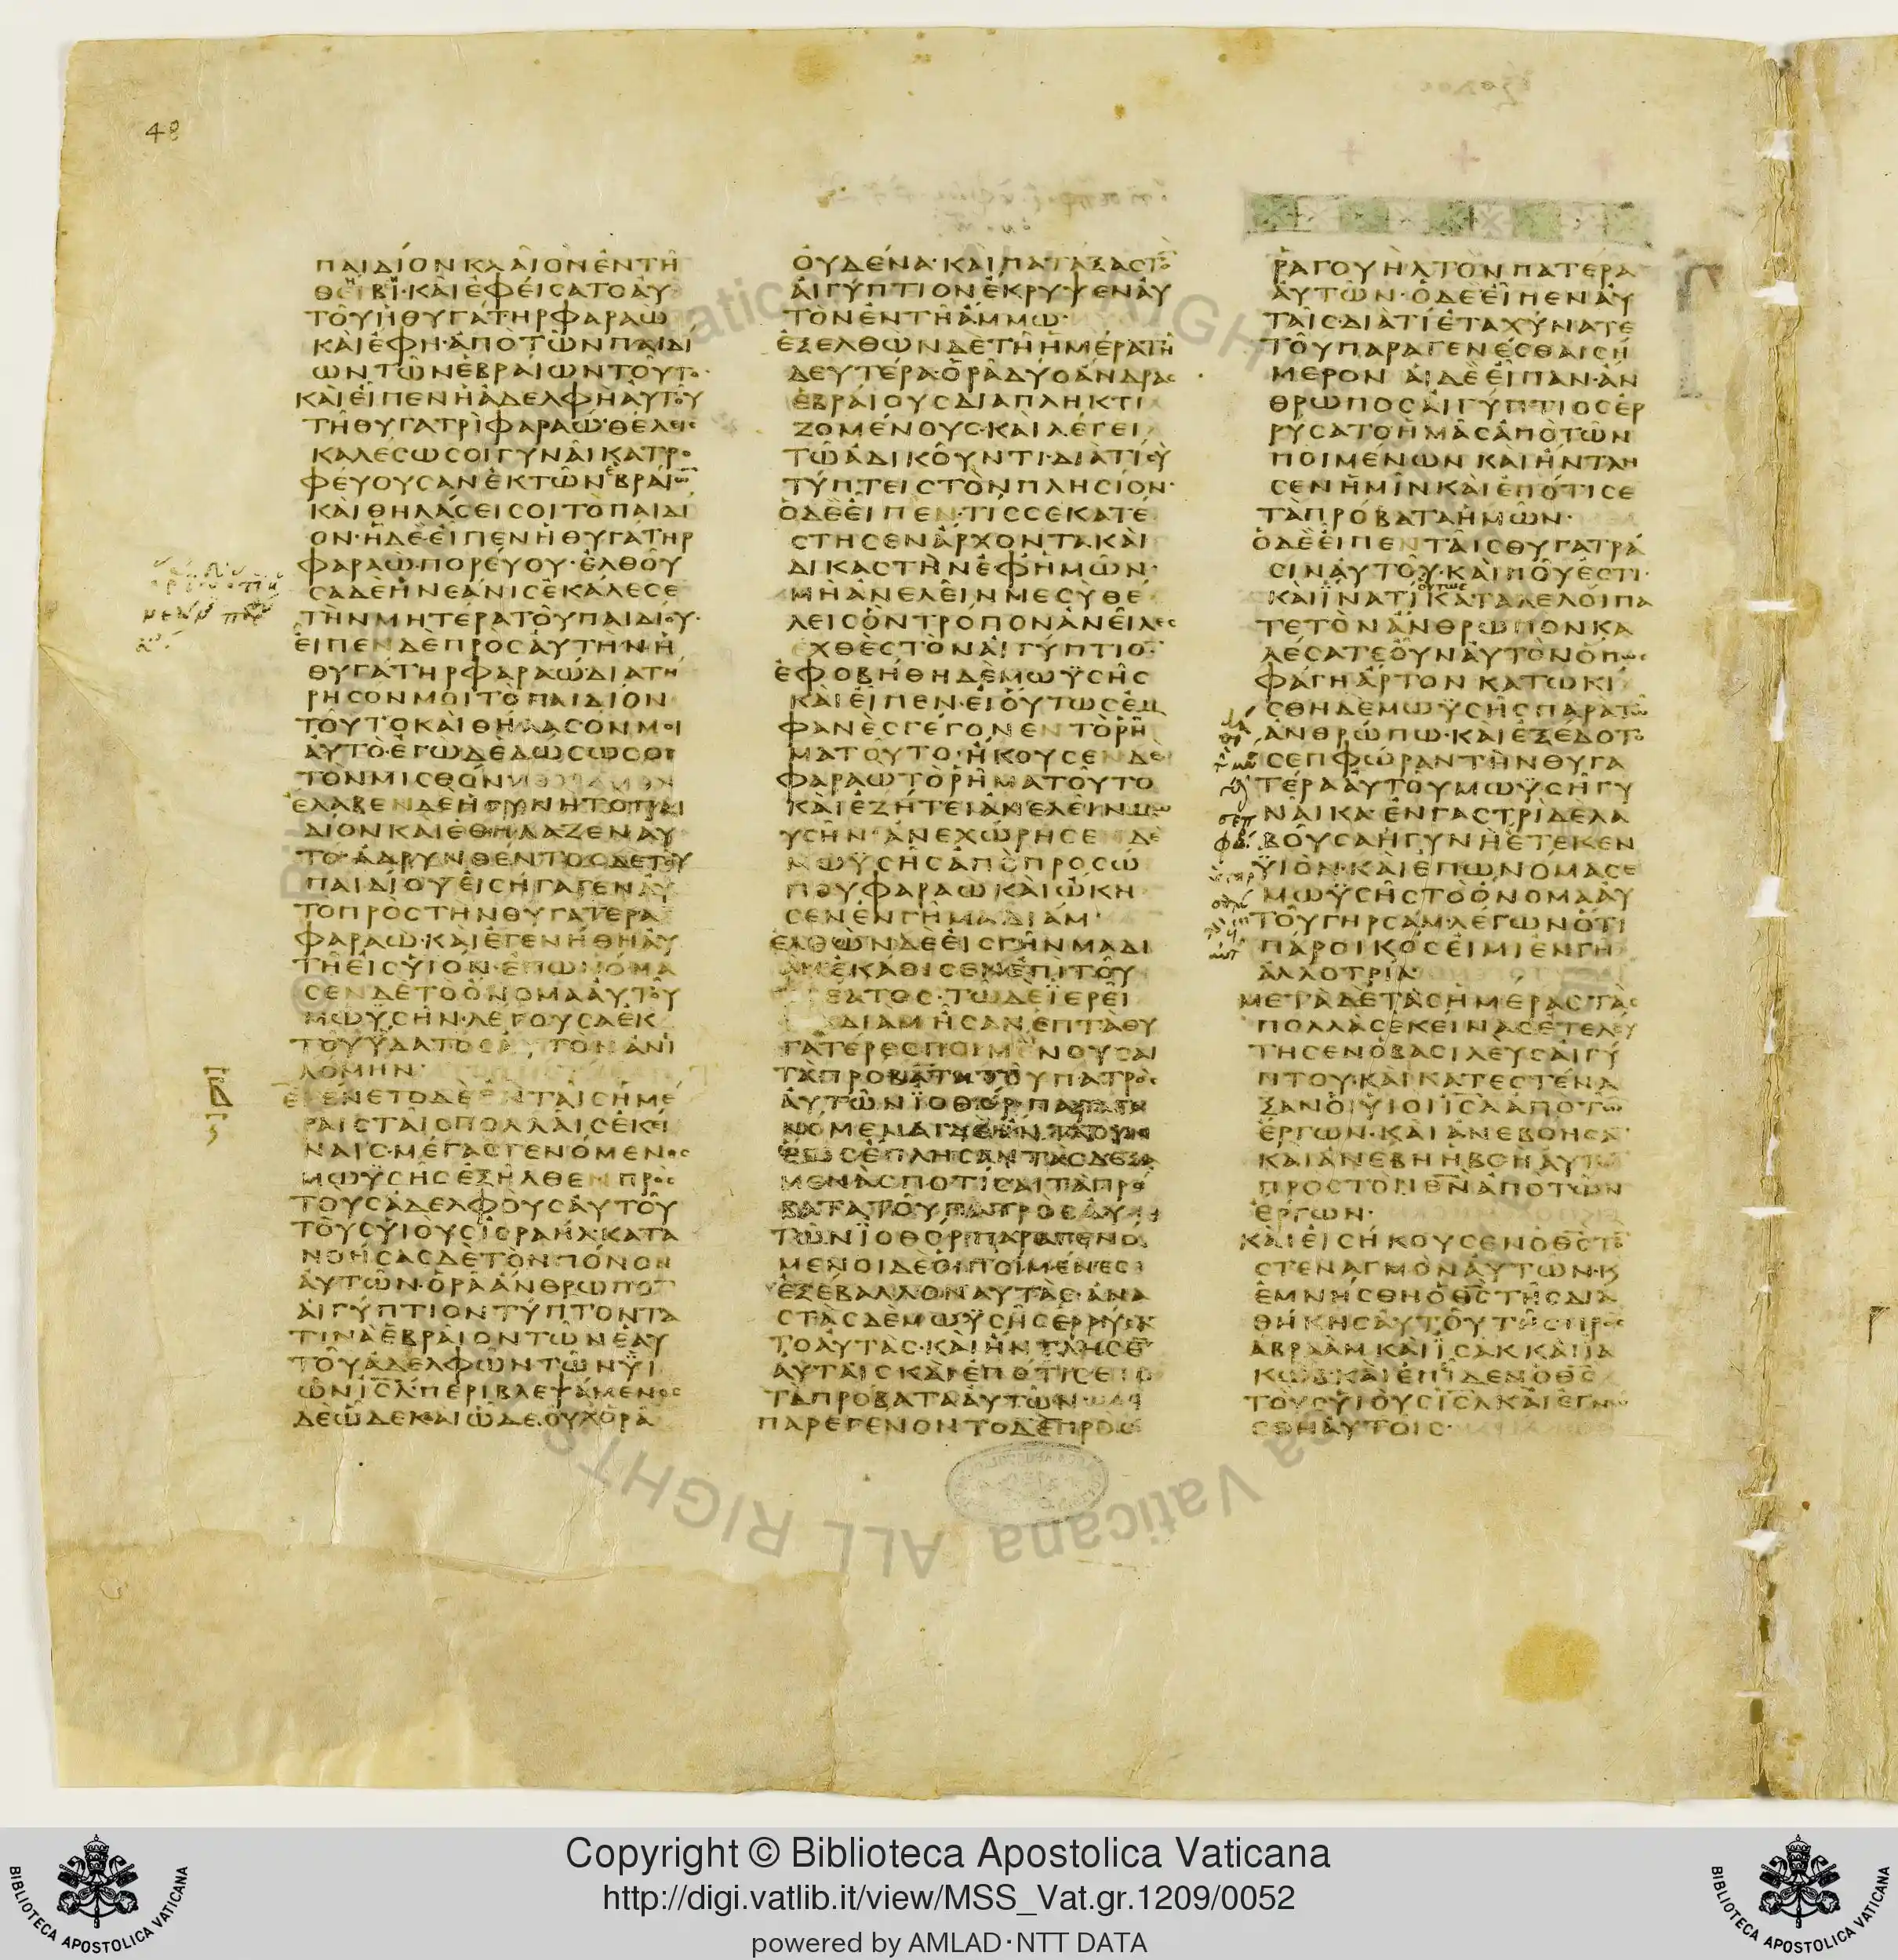 48
ΠΑΙΔΙΟΝ ΚΛΑΙΟΝ ΕΝ ΤΗ
ΘΗΒΙ· ΚΑΙ ΕΦΕΙΣΑΤΟ ΑΥ
ΤΟΥ Η ΘΥΓΑΤΗΡ ΦΑΡΑΩ
ΚΑΙ ΕΦΗ· ΑΠΟ ΤΩΝ ΠΑΙΔΙ
ΩΝ ΤΩΝ ΕΒΡΑΙΩΝ ΤΟΥΤΟ·
ΚΑΙ ΕΙΠΕΝ Η ΑΔΕΛΦΗ ΑΥΤΟΥ
ΤΗ ΘΥΓΑΤΡΙ ΦΑΡΑΩ· ΘΕΛΕΙΣ
ΚΑΛΕΣΩ ΣΟΙ ΓΥΝΑΙΚΑ ΤΡΟ
ΦΕΥΟΥΣΑΝ ΕΚ ΤΩΝ ΕΒΡΑΙΩΝ
ΚΑΙ ΘΗΛΑΣΕΙ ΣΟΙ ΤΟ ΠΑΙΔΙ
ΟΝ· Η ΔΕ ΕΙΠΕΝ Η ΘΥΓΑΤΗΡ
ΦΑΡΑΩ· ΠΟΡΕΥΟΥ· ΕΛΘΟΥ
ΣΑ ΔΕ Η ΝΕΑΝΙΣ ΕΚΑΛΕΣΕ
ΤΗΝ ΜΗΤΕΡΑ ΤΟΥ ΠΑΙΔΙΟΥ·
ΕΙΠΕΝ ΔΕ ΠΡΟΣ ΑΥΤΗΝ Η
ΘΥΓΑΤΗΡ ΦΑΡΑΩ ΔΙΑΤΗ
ΡΗΣΟΝ ΜΟΙ ΤΟ ΠΑΙΔΙΟΝ
ΤΟΥΤΟ ΚΑΙ ΘΗΛΑΣΟΝ ΜΟΙ
ΑΥΤΟ· ΕΓΩ ΔΕ ΔΩΣΩ ΣΟΙ
ΤΟΝ ΜΙΣΘΟΝ
ΕΛΑΒΕΝ ΔΕ Η ΓΥΝΗ ΤΟ ΠΑΙ
ΔΙΟΝ ΚΑΙ ΕΘΗΛΑΖΕΝ ΑΥ
ΤΟ· ΑΔΡΥΝΘΕΝΤΟΣ ΔΕ ΤΟΥ
ΠΑΙΔΙΟΥ ΕΙΣΗΓΑΓΕΝ ΑΥ
ΤΟ ΠΡΟΣ ΤΗΝ ΘΥΓΑΤΕΡΑ
ΦΑΡΑΩ· ΚΑΙ ΕΓΕΝΗΘΗ ΑΥ
ΤΗ ΕΙΣ ΥΙΟΝ· ΕΠΩΝΟΜΑ
ΣΕΝ ΔΕ ΤΟ ΟΝΟΜΑ ΑΥΤΟΥ
ΜΩΥΣΗΝ· ΛΕΓΟΥΣΑ ΕΚ
ΤΟΥ ΥΔΑΤΟΣ ΑΥΤΟΝ ΑΝΙ
ΛΟΜΗΝ·
ΕΓΕΝΕΤΟ ΔΕ ΕΝ ΤΑΙΣ ΗΜΕ
ΡΑΙΣ ΤΑΙΣ ΠΟΛΛΑΙΣ ΕΚΕΙ
ΝΑΙΣ· ΜΕΓΑΣ ΓΕΝΟΜΕΝΟΣ
ΜΩΥΣΗΣ ΕΞΗΛΘΕΝ ΠΡΟΣ
ΤΟΥΣ ΑΔΕΛΦΟΥΣ ΑΥΤΟΥ
ΤΟΥΣ ΥΙΟΥΣ ΙΣΡΑΗΛ· ΚΑΤΑ
ΝΟΗΣΑΣ ΔΕ ΤΟΝ ΠΟΝΟΝ
ΑΥΤΩΝ· ΟΡΑ ΑΝΘΡΩΠΟΝ
ΑΙΓΥΠΤΙΟΝ ΤΥΠΤΟΝΤΑ
ΤΙΝΑ ΕΒΡΑΙΟΝ ΤΩΝ ΕΑΥ
ΤΟΥ ΑΔΕΛΦΩΝ ΤΩΝ ΥΙ
ΩΝ ΙΣΛ· ΠΕΡΙΒΛΕΨΑΜΕΝΟΣ
ΔΕ ΩΔΕ ΚΑΙ ΩΔΕ· ΟΥΧ ΟΡΑ
ΟΥΔΕΝΑ· ΚΑΙ ΠΑΤΑΞΑΣ ΤΟΝ
ΑΙΓΥΠΤΙΟΝ ΕΚΡΥΨΕΝ ΑΥ
ΤΟΝ ΕΝ ΤΗ ΑΜΜΩ·
ΕΞΕΛΘΩΝ ΔΕ ΤΗ ΗΜΕΡΑ ΤΗ
ΔΕΥΤΕΡΑ· ΟΡΑ ΔΥΟ ΑΝΔΡΑΣ
ΕΒΡΑΙΟΥΣ ΔΙΑΠΛΗΚΤΙ
ΖΟΜΕΝΟΥΣ· ΚΑΙ ΛΕΓΕΙ
ΤΩ ΑΔΙΚΟΥΝΤΙ· ΔΙΑ ΤΙ ΣΥ
ΤΥΠΤΕΙΣ ΤΟΝ ΠΛΗΣΙΟΝ·
Ο ΔΕ ΕΙΠΕΝ· ΤΙΣ ΣΕ ΚΑΤΕ
ΣΤΗΣΕΝ ΑΡΧΟΝΤΑ ΚΑΙ
ΔΙΚΑΣΤΗΝ ΕΦ ΗΜΩΝ·
ΜΗ ΑΝΕΛΕΙΝ ΜΕ ΣΥ ΘΕ
ΛΕΙΣ ΟΝ ΤΡΟΠΟΝ ΑΝΕΙΛΕΣ
ΕΧΘΕΣ ΤΟΝ ΑΙΓΥΠΤΙΟΝ·
ΕΦΟΒΗΘΗ ΔΕ ΜΩΥΣΗΣ
ΚΑΙ ΕΙΠΕΝ· ΕΙ ΟΥΤΩΣ ΕΜ
ΦΑΝΕΣ ΓΕΓΟΝΕΝ ΤΟ ΡΗ
ΜΑ ΤΟΥΤΟ· ΗΚΟΥΣΕΝ ΔΕ
ΦΑΡΑΩ ΤΟ ΡΗΜΑ ΤΟΥΤΟ
ΚΑΙ ΕΖΗΤΕΙ ΑΝΕΛΕΙΝ ΜΩ
ΥΣΗΝ· ΑΝΕΧΩΡΗΣΕΝ ΔΕ
ΜΩΥΣΗΣ ΑΠΟ ΠΡΟΣΩ
ΠΟΥ ΦΑΡΑΩ ΚΑΙ ΩΚΗ
ΣΕΝ ΕΝ ΓΗ ΜΑΔΙΑΜ·
ΕΛΘΩΝ ΔΕ ΕΙΣ ΓΗΝ ΜΑΔΙ
ΑΜ ΕΚΑΘΙΣΕΝ ΕΠΙ ΤΟΥ
ΦΡΕΑΤΟΣ· ΤΩ ΔΕ ΙΕΡΕΙ
ΜΑΔΙΑΜ ΗΣΑΝ ΕΠΤΑ ΘΥ
ΓΑΤΕΡΕΣ ΠΟΙΜΕΝΟΥΣΑΙ
ΤΑ ΠΡΟΒΑΤΑ ΤΟΥ ΠΑΤΡΟΣ
ΑΥΤΩΝ ΙΟΘΟΡ· ΠΑΡΑΓΙ
ΝΟΜΕΝΑΙ ΔΕ ΗΝΤΛΟΥΝ
ΕΩΣ ΕΠΛΗΣΑΝ ΤΑΣ ΔΕΞΑ
ΜΕΝΑΣ ΠΟΤΙΣΑΙ ΤΑ ΠΡΟ
ΒΑΤΑ ΤΟΥ ΠΑΤΡΟΣ ΑΥ
ΤΩΝ ΙΟΘΟΡ· ΠΑΡΑΓΕΝΟ
ΜΕΝΟΙ ΔΕ ΟΙ ΠΟΙΜΕΝΕΣ
ΕΞΕΒΑΛΛΟΝ ΑΥΤΑΣ· ΑΝΑ
ΣΤΑΣ ΔΕ ΜΩΥΣΗΣ ΕΡΡΥΣΑ
ΤΟ ΑΥΤΑΣ· ΚΑΙ ΗΝΤΛΗΣΕΝ
ΑΥΤΑΙΣ ΚΑΙ ΕΠΟΤΙΣΕ
ΤΑ ΠΡΟΒΑΤΑ ΑΥΤΩΝ·
ΠΑΡΕΓΕΝΟΝΤΟ ΔΕ ΠΡΟΣ
ΡΑΓΟΥΗΛ ΤΟΝ ΠΑΤΕΡΑ
ΑΥΤΩΝ· Ο ΔΕ ΕΙΠΕΝ ΑΥ
ΤΑΙΣ· ΔΙΑ ΤΙ ΕΤΑΧΥΝΑΤΕ
ΤΟΥ ΠΑΡΑΓΕΝΕΣΘΑΙ ΣΗ
ΜΕΡΟΝ ΑΙ ΔΕ ΕΙΠΑΝ· ΑΝ
ΘΡΩΠΟΣ ΑΙΓΥΠΤΙΟΣ ΕΡ
ΡΥΣΑΤΟ ΗΜΑΣ ΑΠΟ ΤΩΝ
ΠΟΙΜΕΝΩΝ ΚΑΙ ΗΝΤΛΗ
ΣΕΝ ΗΜΙΝ ΚΑΙ ΕΠΟΤΙΣΕ
ΤΑ ΠΡΟΒΑΤΑ ΗΜΩΝ·
Ο ΔΕ ΕΙΠΕΝ ΤΑΙΣ ΘΥΓΑΤΡΑ
ΣΙΝ ΑΥΤΟΥ· ΚΑΙ ΠΟΥ ΕΣΤΙ·
ΚΑΙ ΙΝΑ ΤΙ ΟΥΤΩΣ ΚΑΤΑΛΕΛΟΙΠΑ
ΤΕ ΤΟΝ ΑΝΘΡΩΠΟΝ ΚΑ
ΛΕΣΑΤΕ ΟΥΝ ΑΥΤΟΝ ΟΠΩΣ
ΦΑΓΗ ΑΡΤΟΝ ΚΑΤΩΚΙ
ΣΘΗ ΔΕ ΜΩΥΣΗΣ ΠΑΡΑ ΤΩ
ΑΝΘΡΩΠΩ· ΚΑΙ ΕΞΕΔΟΤΟ
ΣΕΠΦΩΡΑΝ ΤΗΝ ΘΥΓΑ
ΤΕΡΑ ΑΥΤΟΥ ΜΩΥΣΗ ΓΥ
ΝΑΙΚΑ· ΕΝ ΓΑΣΤΡΙ ΔΕ ΛΑ
ΒΟΥΣΑ Η ΓΥΝΗ ΕΤΕΚΕΝ
ΥΙΟΝ· ΚΑΙ ΕΠΩΝΟΜΑΣΕ
ΜΩΥΣΗΣ ΤΟ ΟΝΟΜΑ ΑΥ
ΤΟΥ ΓΗΡΣΑΜ· ΛΕΓΩΝ ΟΤΙ
ΠΑΡΟΙΚΟΣ ΕΙΜΙ ΕΝ ΓΗ
ΑΛΛΟΤΡΙΑ·
ΜΕΤΑ ΔΕ ΤΑΣ ΗΜΕΡΑΣ ΤΑΣ
ΠΟΛΛΑΣ ΕΚΕΙΝΑΣ ΕΤΕΛΕΥ
ΤΗΣΕΝ Ο ΒΑΣΙΛΕΥΣ ΑΙΓΥ
ΠΤΟΥ· ΚΑΙ ΚΑΤΕΣΤΕΝΑ
ΞΑΝ ΟΙ ΥΙΟΙ ΙΣΛ ΑΠΟ ΤΩΝ
ΕΡΓΩΝ· ΚΑΙ ΑΝΕΒΟΗΣΑΝ
ΚΑΙ ΑΝΕΒΗ Η ΒΟΗ ΑΥΤΩΝ
ΠΡΟΣ ΤΟΝ ΘΝ ΑΠΟ ΤΩΝ
ΕΡΓΩΝ·
ΚΑΙ ΕΙΣΗΚΟΥΣΕΝ Ο ΘΣ ΤΟΝ
ΣΤΕΝΑΓΜΟΝ ΑΥΤΩΝ· Κ
ΕΜΝΗΣΘΗ Ο ΘΣ ΤΗΣ ΔΙΑ
ΘΗΚΗΣ ΑΥΤΟΥ ΤΗΣ ΠΡΟΣ
ΑΒΡΑΑΜ ΚΑΙ ΙΣΑΚ ΚΑΙ ΙΑ
ΚΩΒ· ΚΑΙ ΕΠΙΔΕΝ Ο ΘΣ
ΤΟΥΣ ΥΙΟΥΣ ΙΣΛ ΚΑΙ ΕΓΝΩ
ΣΘΗ ΑΥΤΟΙΣ·
Copyright © Biblioteca Apostolica Vaticana
http://digi.vatlib.it/view/MSS_Vat.gr.1209/0052
powered by AMLAD·NTT DATA
BIBLIOTECA APOSTOLICA VATICANA
BIBLIOTECA APOSTOLICA VATICANA